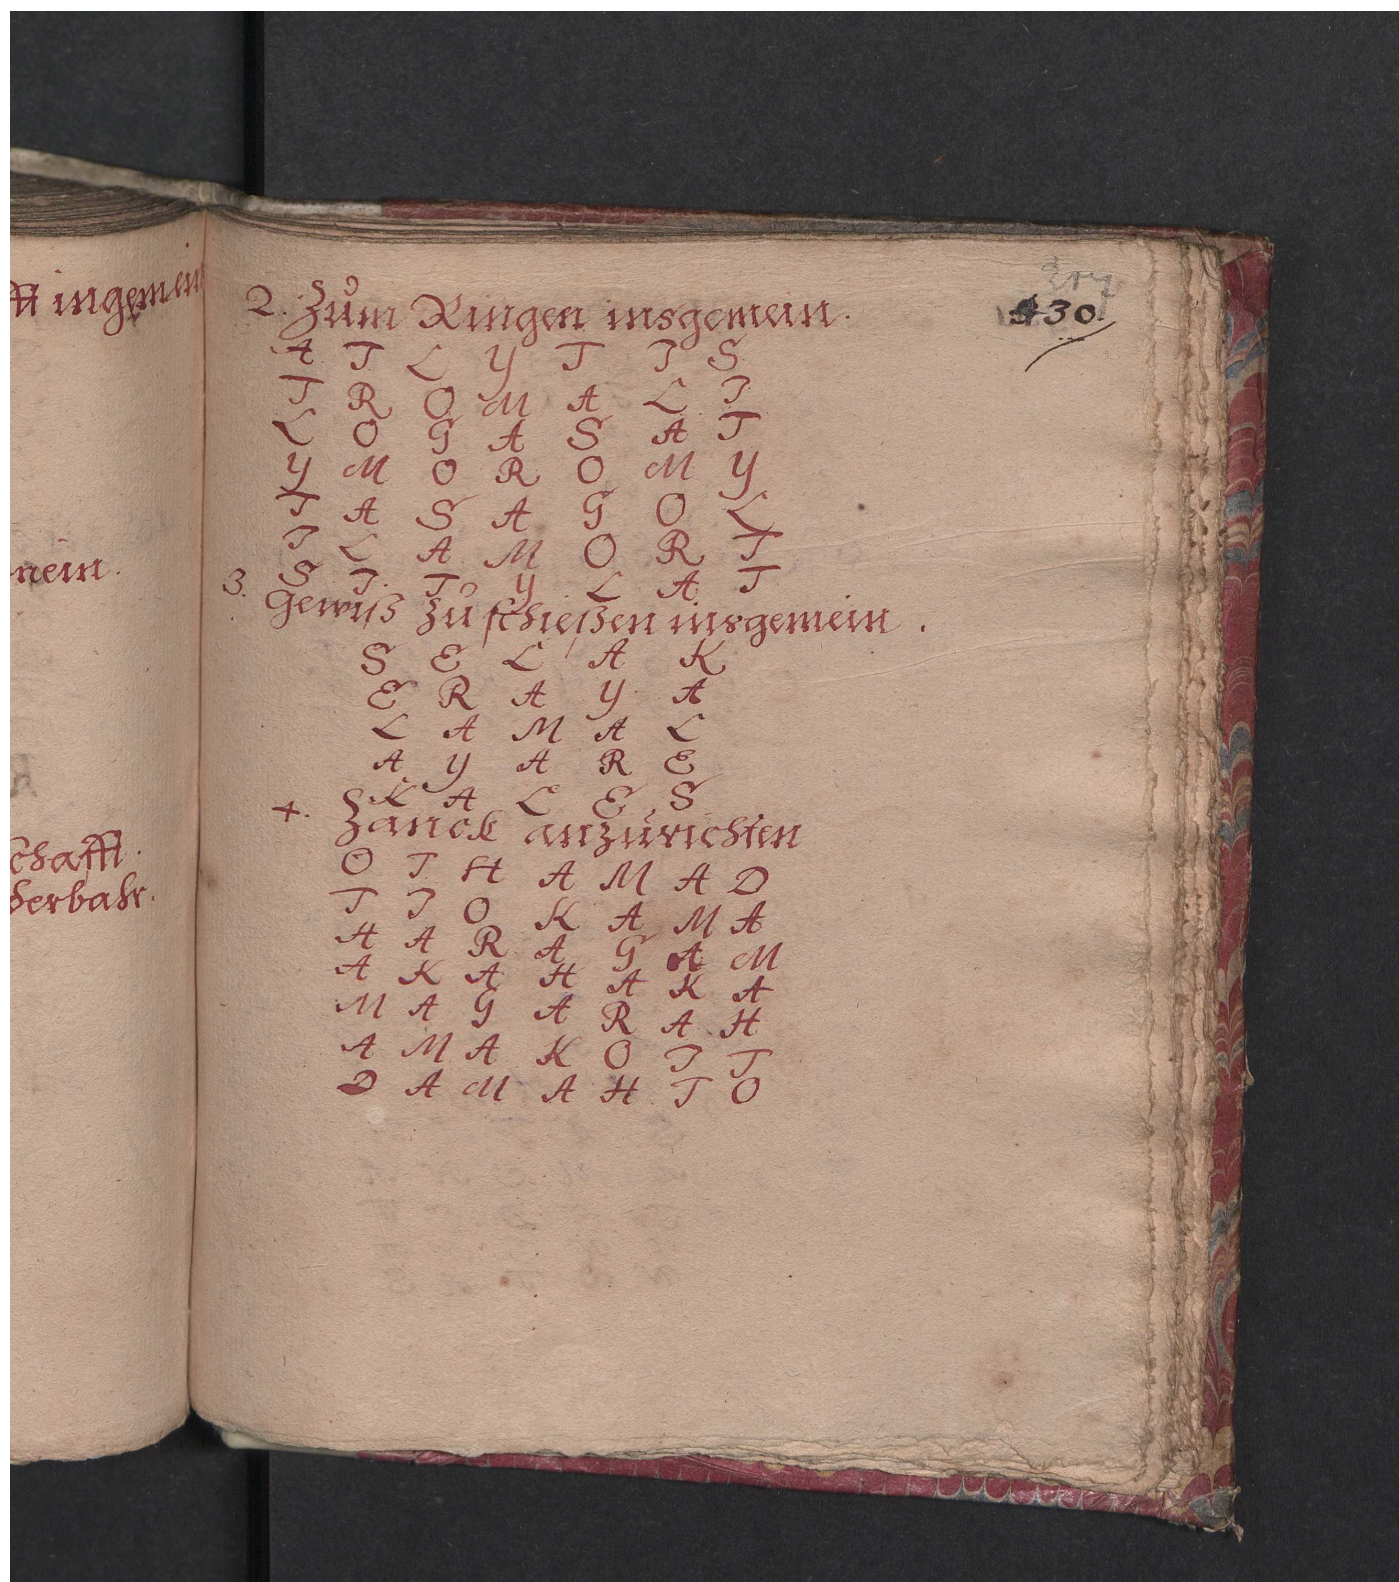 ft ingemein
nein.
schafft.
derbahr.
430.
2. Zům Ringen insgemein.
A T L Y T I S
T R O M A L I
L O G A S A T
Y M O R O M Y
T A S A G O L
I L A M O R T
S I T Y L A T
3. Gewiß zů schießen insgemein.
S E L A K
E R A Y A
L A M A L
A Y A R E
K A L E S
4. Zanck anzurichten
O T H A M A D
T I O K A M A
H A R A G A M
A K A H A K A
M A G A R A H
A M A K O I T
D A M A H T O